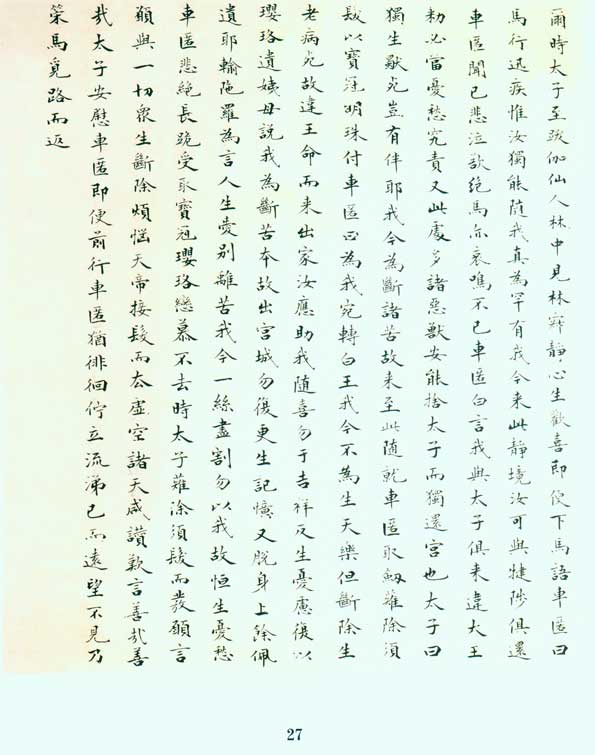 爾時太子至跋伽仙人林中見林寂靜心生歡喜即便下馬語車匿曰
馬行迅疾惟汝獨能隨我真為罕有我今来此靜境汝可與犍陟俱還
車匿聞已悲泣欲絕馬亦哀鳴不已車匿白言我與太子俱来違大王
勑必當憂愁究責又此處多諸惡獸安能捨太子而獨還宮也太子曰
獨生獸死豈有伴耶我今為斷諸苦故来至此隨就車匿取劒薙除須
髮以寶冠明珠付車匿曰為我宛轉白王我今不為生天樂但斷除生
老病死故違王命而来出家汝應助我隨喜勿于吉祥反生憂慮復以
瓔珞遺姨母說我為斷苦本故出宮城勿復更生記懷又脫身上餘佩
遺耶輸陁羅為言人生愛別離苦我今一絲盡割勿以我故恒生憂愁
車匿悲絕長跪受取寶冠瓔珞戀慕不去時太子薙除須髮而發願言
願與一切衆生斷除煩惱天帝接髮而去虛空諸天咸讚歎言善哉善
哉太子安慰車匿即便前行車匿猶徘徊佇立流涕已而遠望不見乃
策馬覓路而返
27